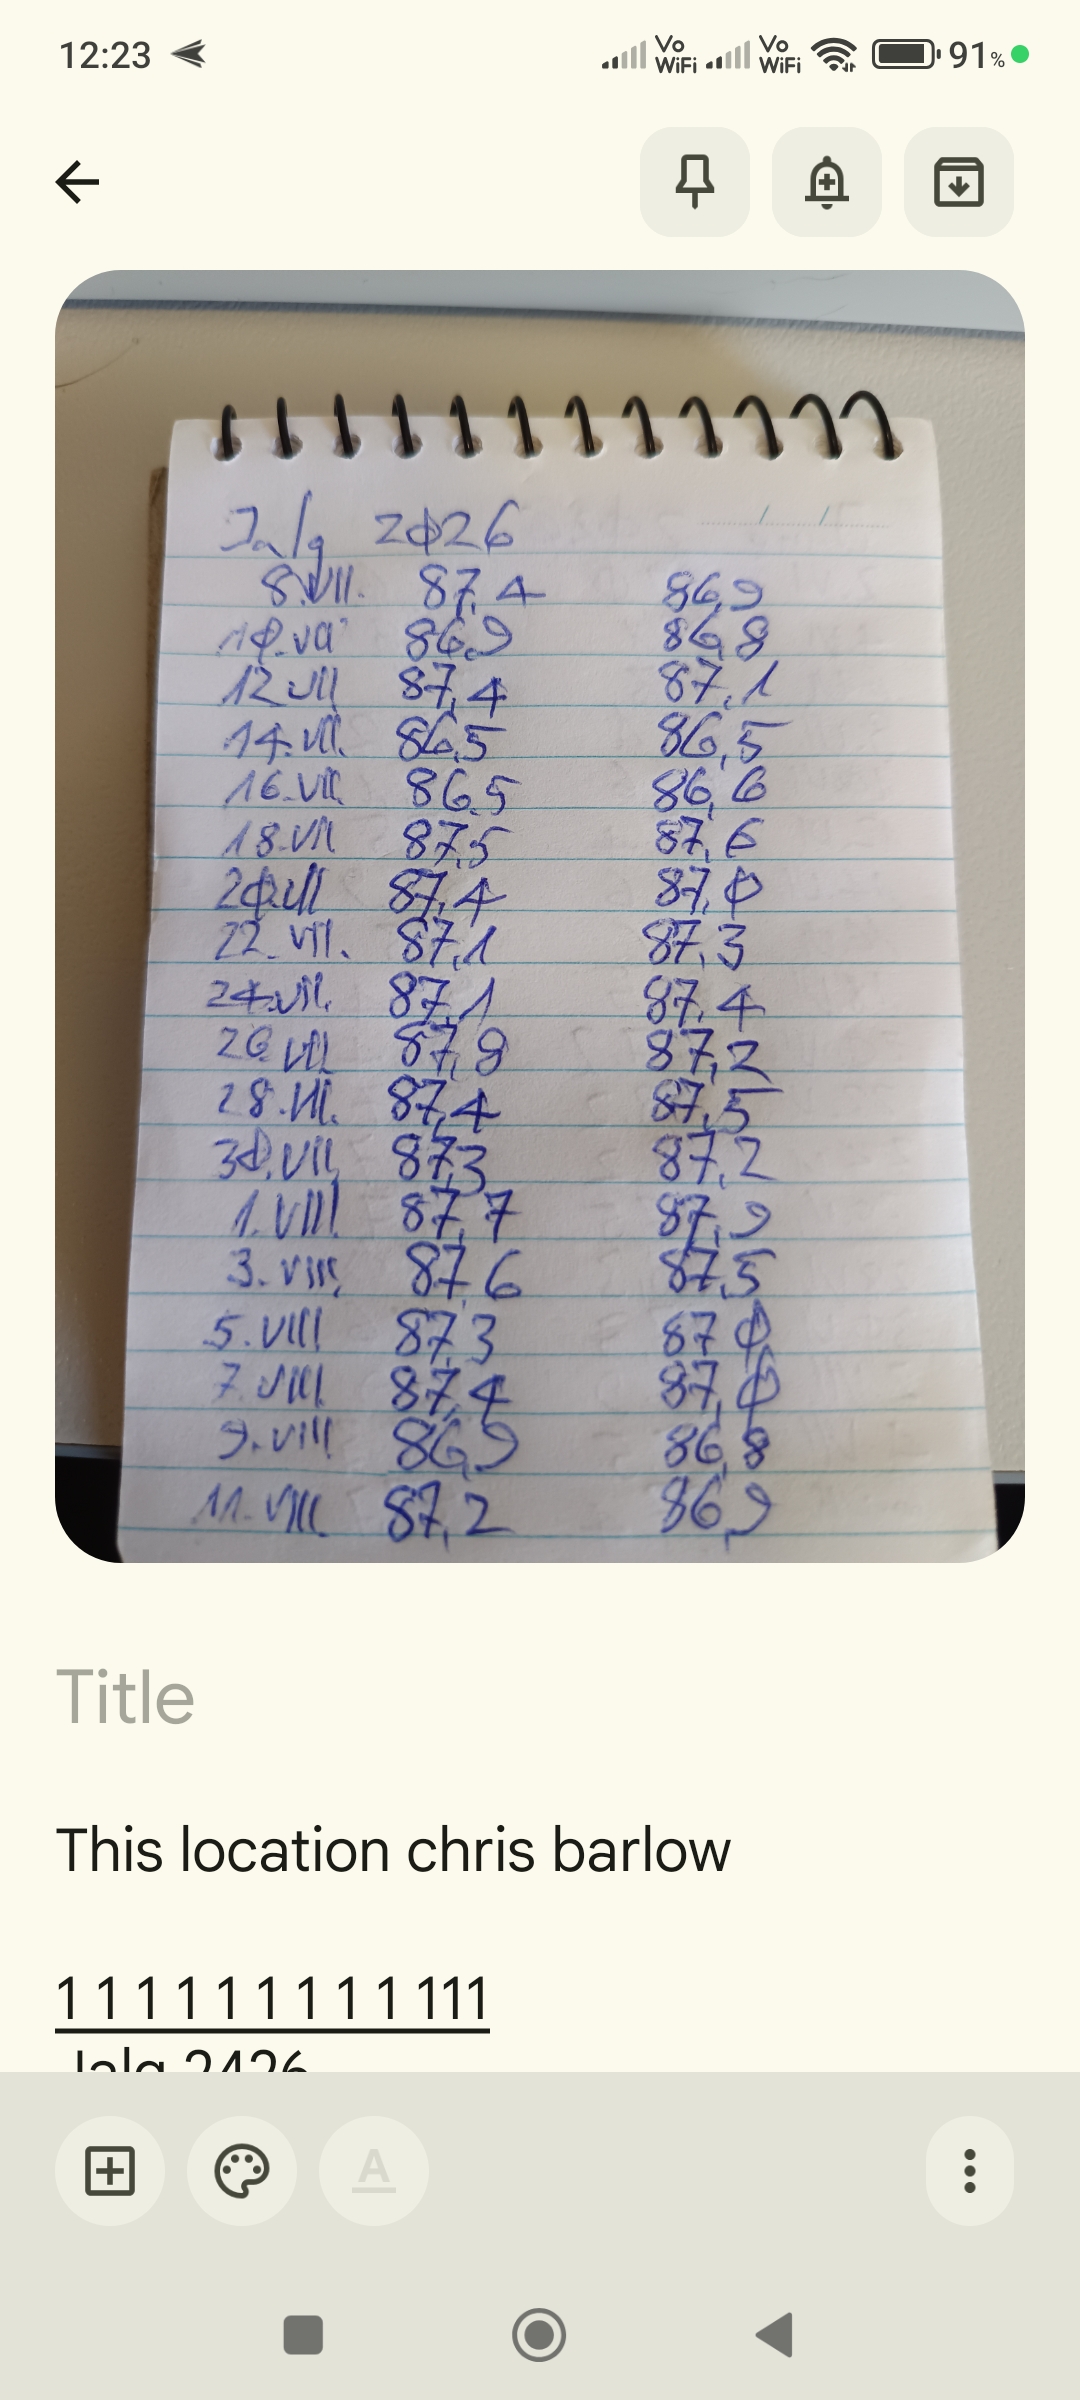 12:23 Vo WiFi Vo WiFi 91%
2026
8.VII. 87,4 86,9
10.VII 86,9 86,8
12.VII 87,4 87,1
14.VII. 86,5 86,5
16.VII. 86,5 86,6
18.VII 87,5 87,6
20.VII 87,4 87,0
22.VII. 87,1 87,3
24.VII. 87,1 87,4
26 VII 87,8 87,2
28.VII. 87,4 87,5
30.VII. 87,3 87,2
1.VIII. 87,7 87,9
3.VIII. 87,6 87,5
5.VIII 87,3 87,0
7.VIII. 87,4 87,0
9.VIII 86,9 86,8
11.VIII. 87,2 86,9
Title
This location chris barlow
1 1 1 1 1 1 1 1 1 111
Jalg 2426
A